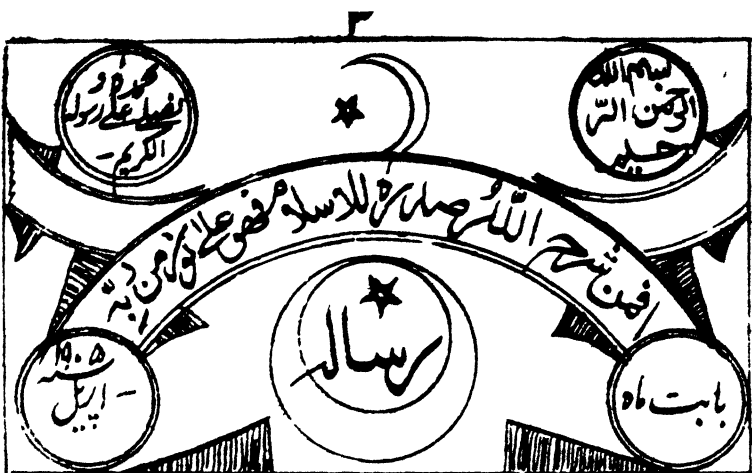 ۳
بسم اللہ
الرحمن الرّ
حیم
نحمدہ و
نصلی علی رسولہ
الکریم -
افمن شرح اللّٰہ صدرہ للاسلام فھو علی نور من ربہ
رسالہ
بابت ماہ
اپریل -
سنہ ۱۹۰۵